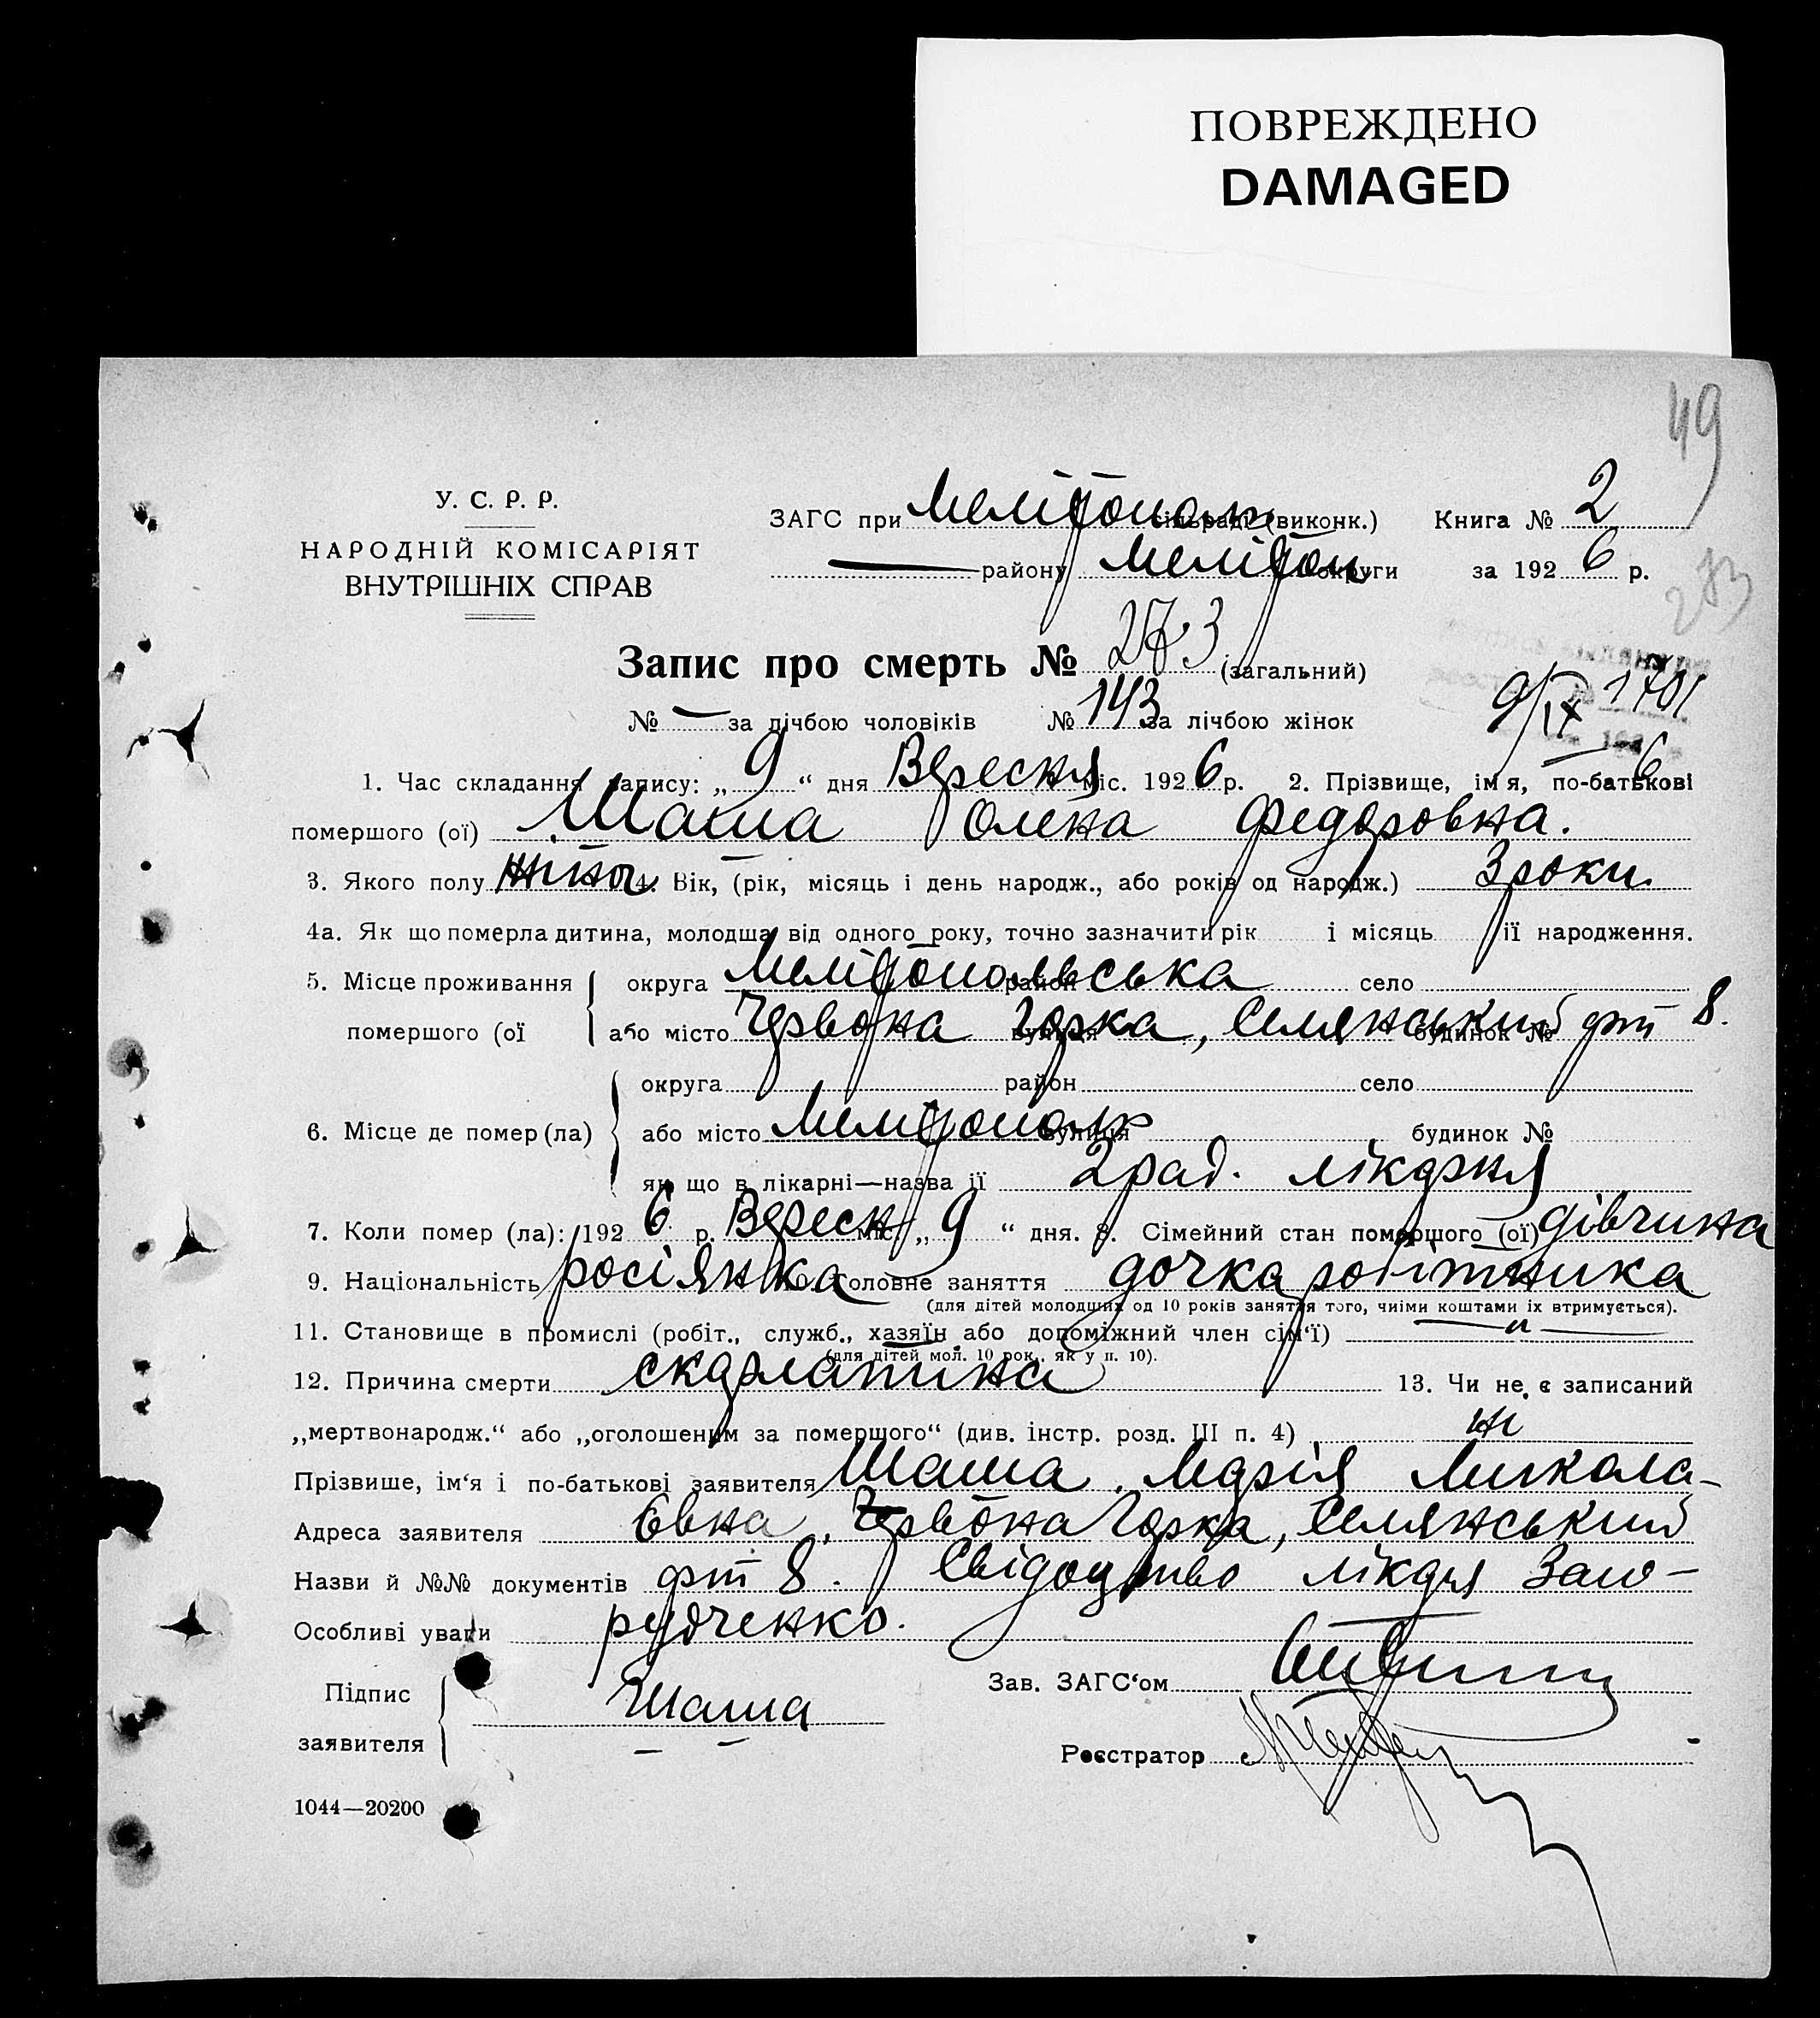 ПОВРЕЖДЕНО
DAMAGED
49
У. С. Р. Р.
НАРОДНІЙ КОМІСАРІЯТ
ВНУТРІШНІХ СПРАВ
ЗАГС при Мелітополь сільраді (виконк.) Книга № 2
— району Мелітоп округи за 1926 р.
273
Запис про смерть № 273 (загальний)
№ — за лічбою чоловіків № 143 за лічбою жінок
9/IX 1701
6
1. Час складання запису: „ 9 “ дня Вересня міс. 1926 р. 2. Прізвище, імя, по-батькові
помершого (ої) Шаша Олена Федоровна.
3. Якого полу жіноч 4. Вік, (рік, місяць і день народж., або років од народж.) 3 роки
4а. Як що померла дитина, молодша від одного року, точно зазначити рік і місяць її народження.
5. Місце проживання округа Мелітопольська район село
помершого (ої або місто Червона Горка, вулиця Селянський будинок № 8.
округа район село
6. Місце де помер (ла) або місто Мелітополь вулиця будинок №
як що в лікарні—назва її 2 рад. лікарня
7. Коли помер (ла): 1926 р. Вересн міс. „ 9 “ дня. 8. Сімейний стан помершого (ої) дівчина
9. Національність росіянка 10. Головне заняття дочка робітника
(для дітей молодших од 10 років заняття того, чиїми коштами їх втримується).
11. Становище в промислі (робіт., служб., хазяїн або допоміжний член сім‘ї) — „ —
(для дітей мол. 10 рок., як у п. 10).
12. Причина смерти скарлатина 13. Чи не є записаний
„мертвонародж.“ або „оголошеним за помершого“ (див. інстр. розд. III п. 4) ні
Прізвише, ім‘я і по-батькові заявителя Шаша Марія Микола-
Адреса заявителя євна, Червона Горка, Селянський
Назви й №№ документів 8. Свідоцтво лікаря Заго-
Особливі уваги рудченко.
Підпис
заявителя Шаша
Зав. ЗАГС‘ом
Реєстратор
1044—20200